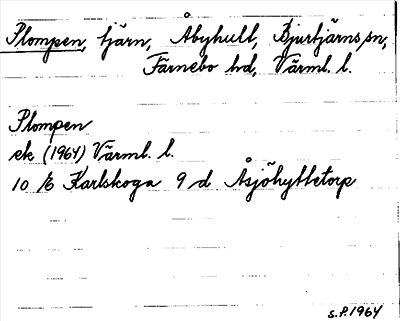 Plompen, tjärn, Åbyhult, Bjurtjärns sn,
Färnebo hd, Värml. l.
Plompen
ek (1964) Värml. l.
10 E Karlskoga 9 d Åsjöhyttetorp
S.P. 1964